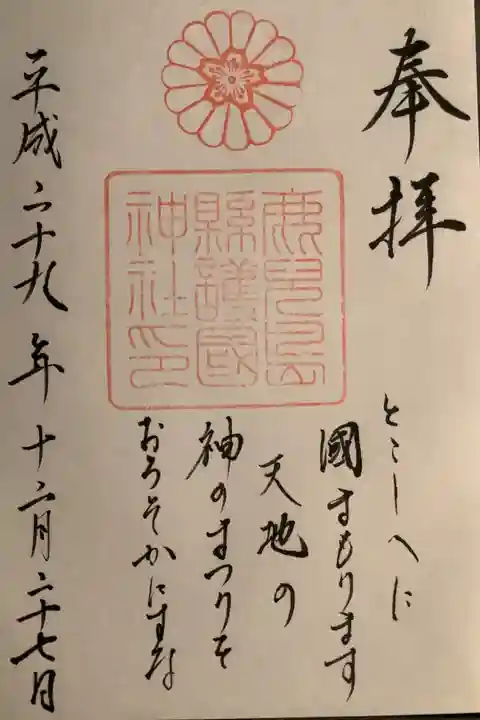 奉拝
とこしへに
國まもります
天地の
神のまつりを
おろそかにすな
鹿兒島
縣護國
神社印
平成二十九年十二月二十七日